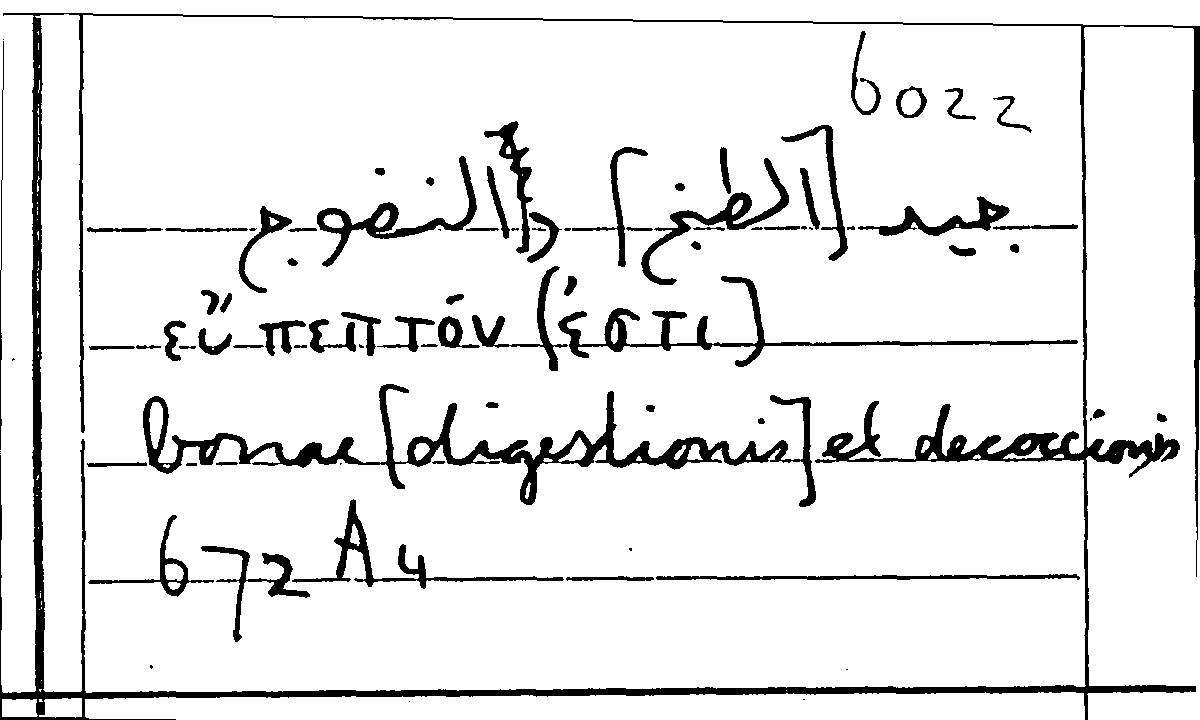 6022
جيد [الطبخ] و النضوج
εὔπεπτόν (ἐστι]
bonae [digestionis] et decoccionis
672 A 4